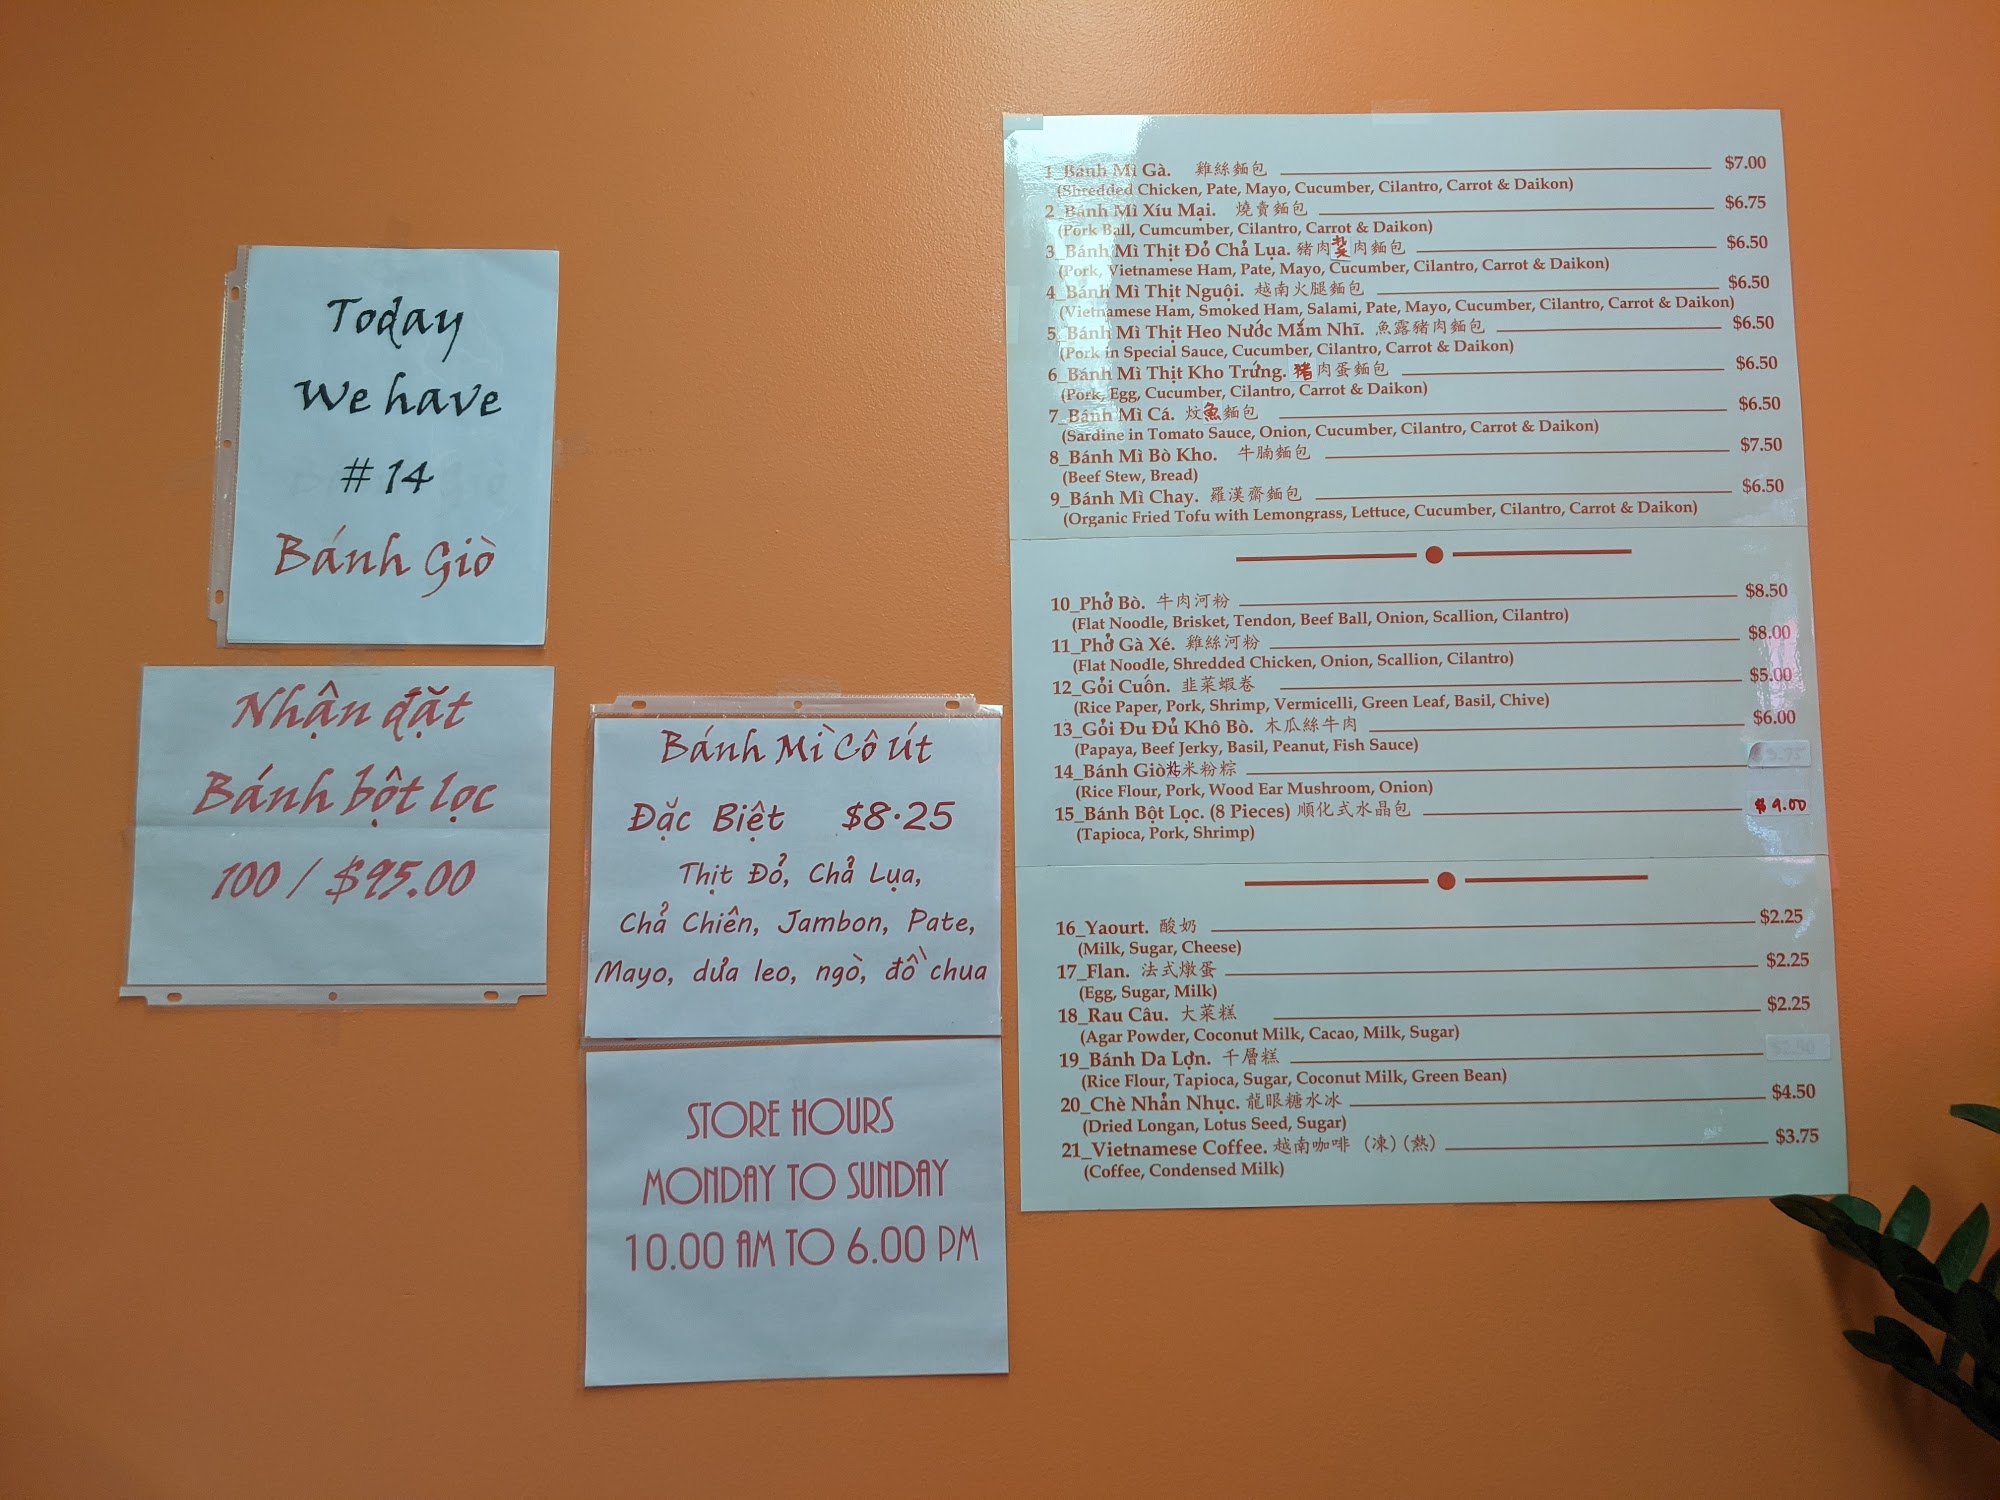 Today
We have
# 14
Bánh Giò
Nhận đặt
Bánh bột lọc
100 / $95.00
Bánh Mì Cô Út
Đặc Biệt $8.25
Thịt Đỏ, Chả Lụa,
Chả Chiên, Jambon, Pate,
Mayo, dưa leo, ngò, đồ chua
STORE HOURS
MONDAY TO SUNDAY
10.00 AM TO 6.00 PM
1_Bánh Mì Gà. 雞絲麵包 $7.00
(Shredded Chicken, Pate, Mayo, Cucumber, Cilantro, Carrot & Daikon)
2_Bánh Mì Xíu Mại. 燒賣麵包 $6.75
(Pork Ball, Cumcumber, Cilantro, Carrot & Daikon)
3_Bánh Mì Thịt Đỏ Chả Lụa. 豬肉扎肉麵包 $6.50
(Pork, Vietnamese Ham, Pate, Mayo, Cucumber, Cilantro, Carrot & Daikon)
4_Bánh Mì Thịt Nguội. 越南火腿麵包 $6.50
(Vietnamese Ham, Smoked Ham, Salami, Pate, Mayo, Cucumber, Cilantro, Carrot & Daikon)
5_Bánh Mì Thịt Heo Nước Mắm Nhĩ. 魚露豬肉麵包 $6.50
(Pork in Special Sauce, Cucumber, Cilantro, Carrot & Daikon)
6_Bánh Mì Thịt Kho Trứng. 豬肉蛋麵包 $6.50
(Pork, Egg, Cucumber, Cilantro, Carrot & Daikon)
7_Bánh Mì Cá. 炆魚麵包 $6.50
(Sardine in Tomato Sauce, Onion, Cucumber, Cilantro, Carrot & Daikon)
8_Bánh Mì Bò Kho. 牛腩麵包 $7.50
(Beef Stew, Bread)
9_Bánh Mì Chay. 羅漢齋麵包 $6.50
(Organic Fried Tofu with Lemongrass, Lettuce, Cucumber, Cilantro, Carrot & Daikon)
10_Phở Bò. 牛肉河粉 $8.50
(Flat Noodle, Brisket, Tendon, Beef Ball, Onion, Scallion, Cilantro)
11_Phở Gà Xé. 雞絲河粉 $8.00
(Flat Noodle, Shredded Chicken, Onion, Scallion, Cilantro)
12_Gỏi Cuốn. 韭菜蝦卷 $5.00
(Rice Paper, Pork, Shrimp, Vermicelli, Green Leaf, Basil, Chive)
13_Gỏi Đu Đủ Khô Bò. 木瓜絲牛肉 $6.00
(Papaya, Beef Jerky, Basil, Peanut, Fish Sauce)
14_Bánh Giò 粘米粉粽
(Rice Flour, Pork, Wood Ear Mushroom, Onion)
15_Bánh Bột Lọc. (8 Pieces) 順化式水晶包 $9.00
(Tapioca, Pork, Shrimp)
16_Yaourt. 酸奶 $2.25
(Milk, Sugar, Cheese)
17_Flan. 法式燉蛋 $2.25
(Egg, Sugar, Milk)
18_Rau Câu. 大菜糕 $2.25
(Agar Powder, Coconut Milk, Cacao, Milk, Sugar)
19_Bánh Da Lợn. 千層糕 $2.50
(Rice Flour, Tapioca, Sugar, Coconut Milk, Green Bean)
20_Chè Nhãn Nhục. 龍眼糖水冰 $4.50
(Dried Longan, Lotus Seed, Sugar)
21_Vietnamese Coffee. 越南咖啡 (凍) (熱) $3.75
(Coffee, Condensed Milk)